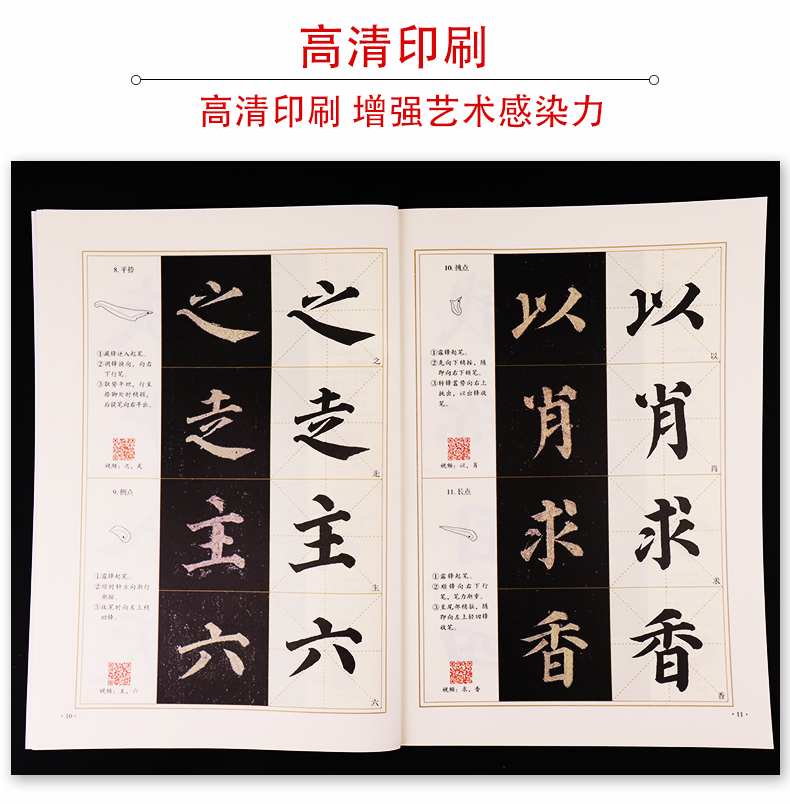 高清印刷
高清印刷 增强艺术感染力
8. 平捺
①藏锋逆入起笔。
②调锋换向，向右
下行笔。
③取势平捺，行至
捺脚处时稍顿，
后提笔向右平出。
视频：之，走
9. 侧点
①露锋起笔。
②顺时针方向渐行
渐按。
③收笔时向左上稍
回锋。
视频：主，六
之
走
主
六
之
走
主
六
之
走
主
六
·10·
10. 挑点
①露锋起笔。
②先向下稍按，随
即向右下顿笔。
③转锋蓄势向右上
挑出，以出锋收
笔。
视频：以，肖
11. 长点
①露锋起笔。
②顺锋向右下行
笔，笔力渐重。
③至尾部稍驻，随
即向左上轻回锋
收笔。
视频：求，香
以
肖
求
香
以
肖
求
香
以
肖
求
香
·11·